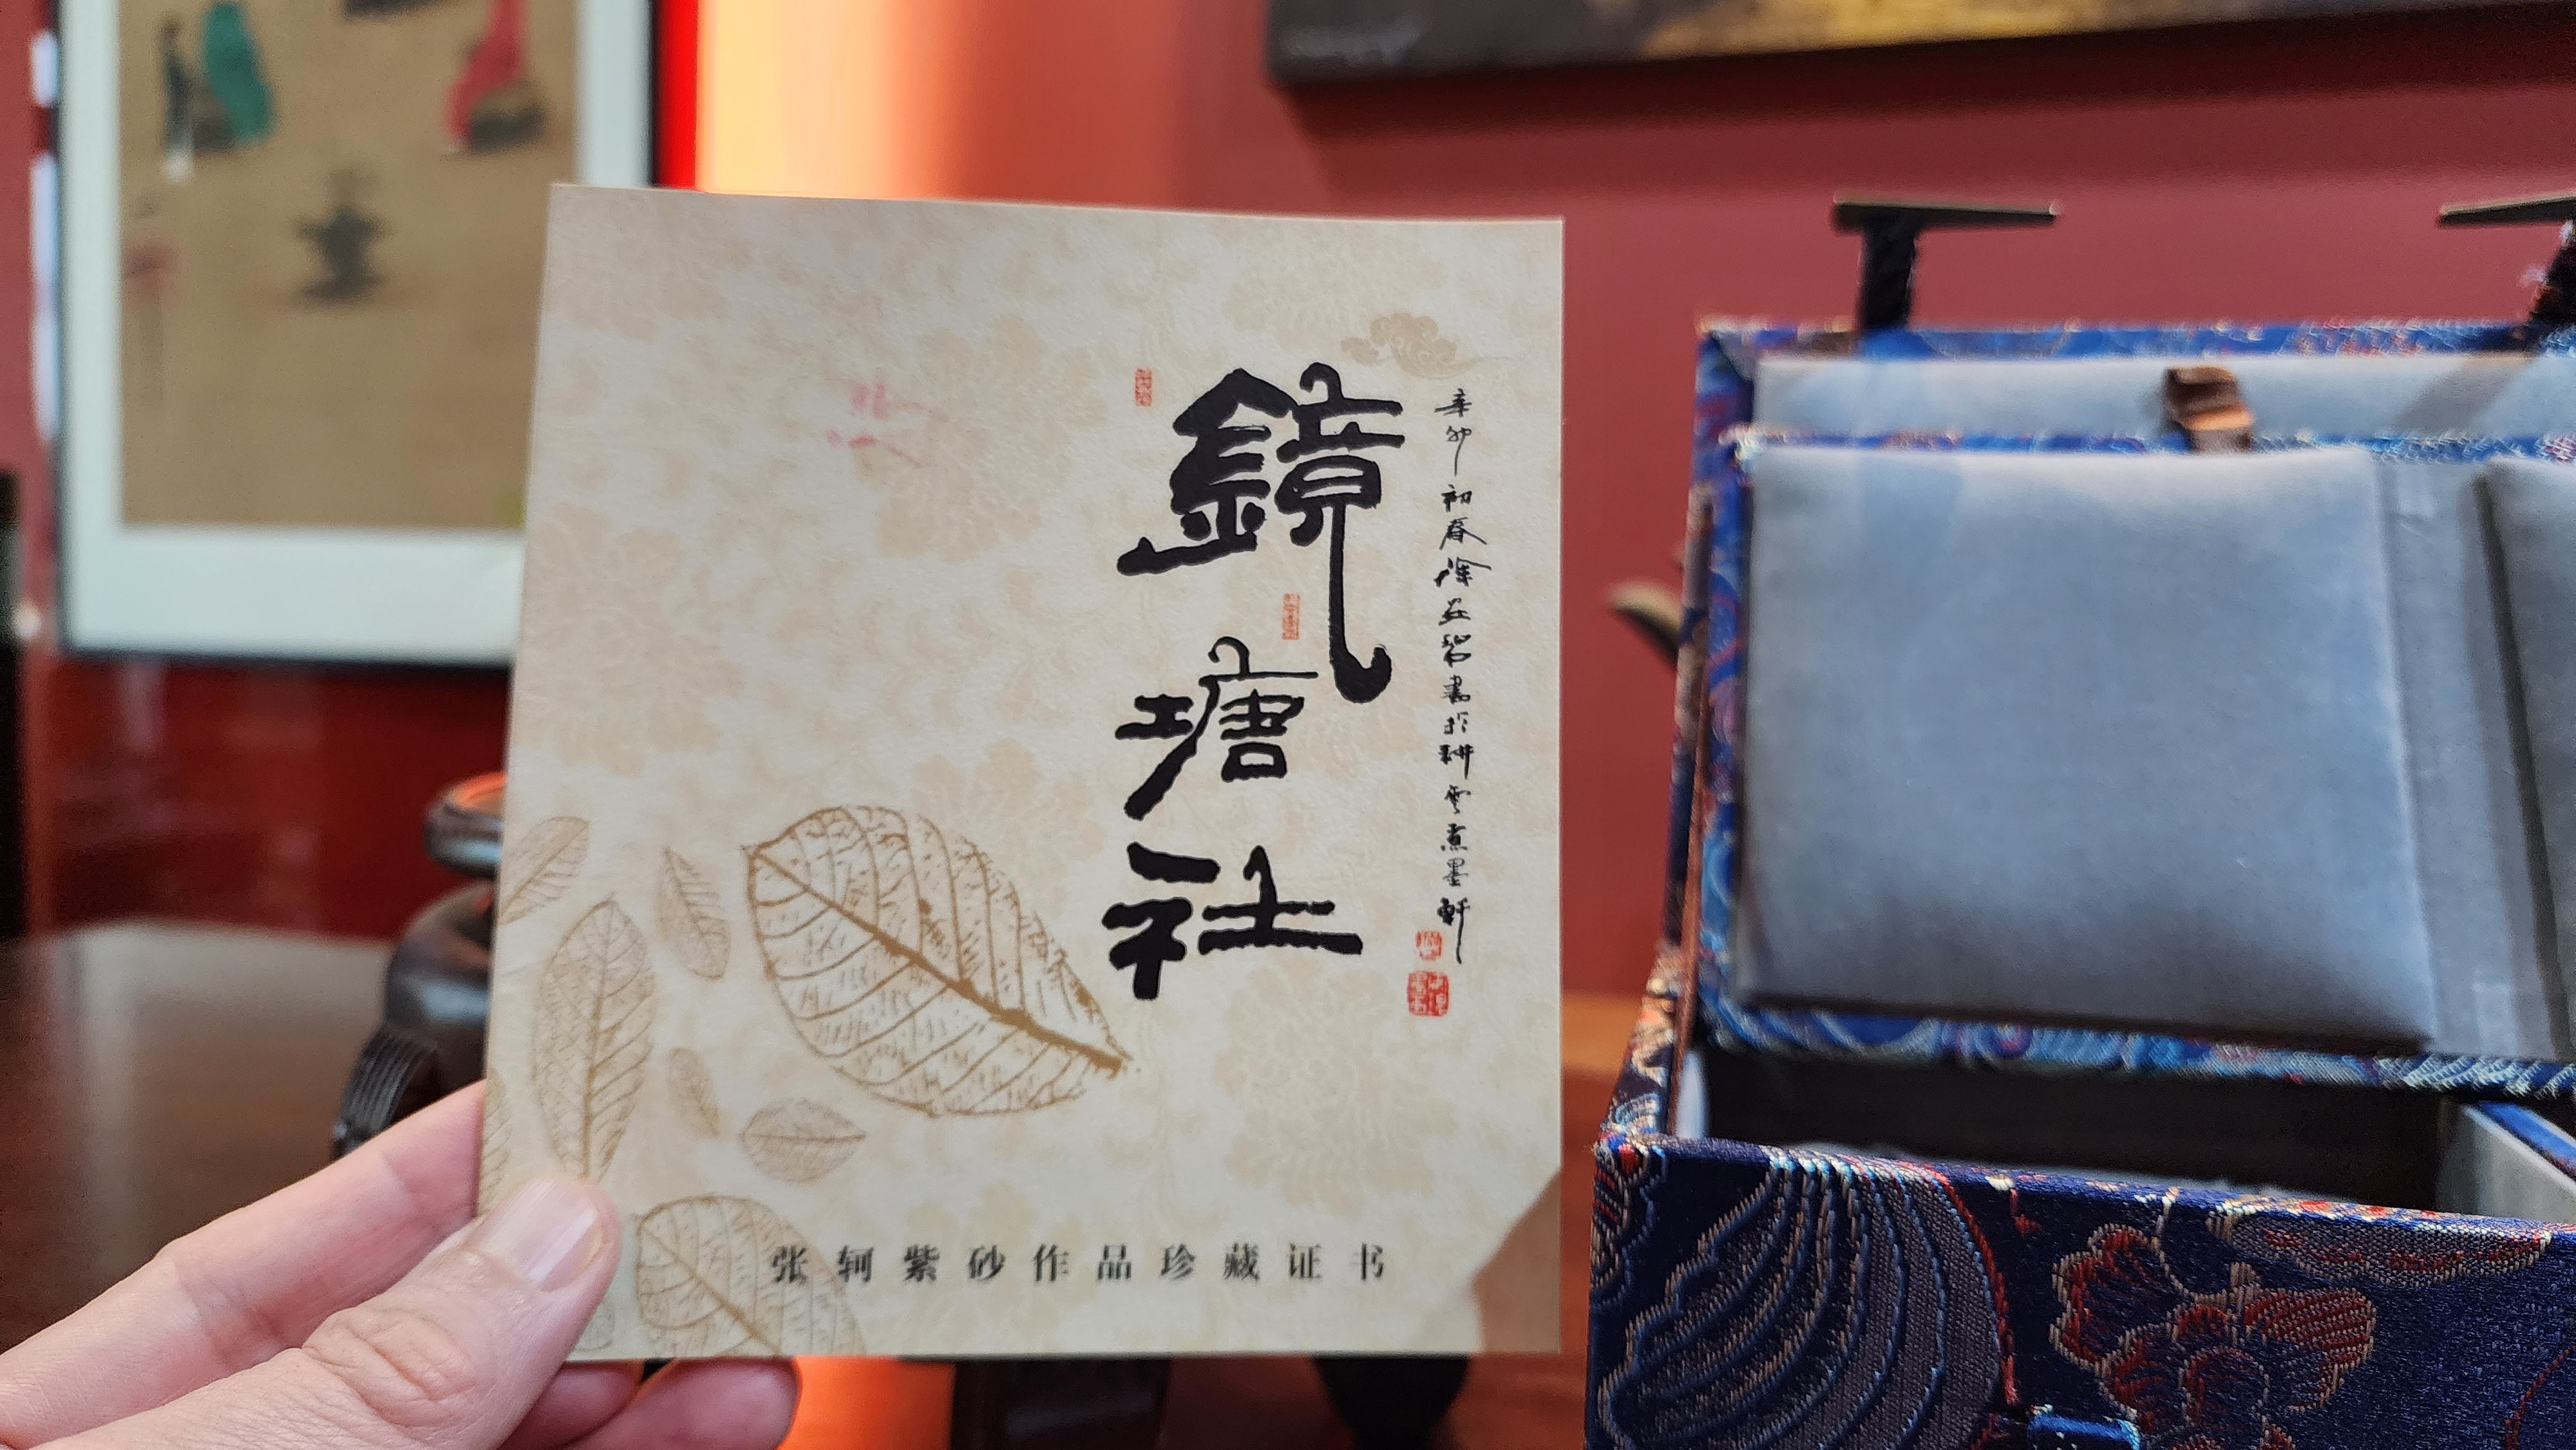 辛卯初春徐並碧書於耕雲煮墨軒
鏡塘社
张轲紫砂作品珍藏证书